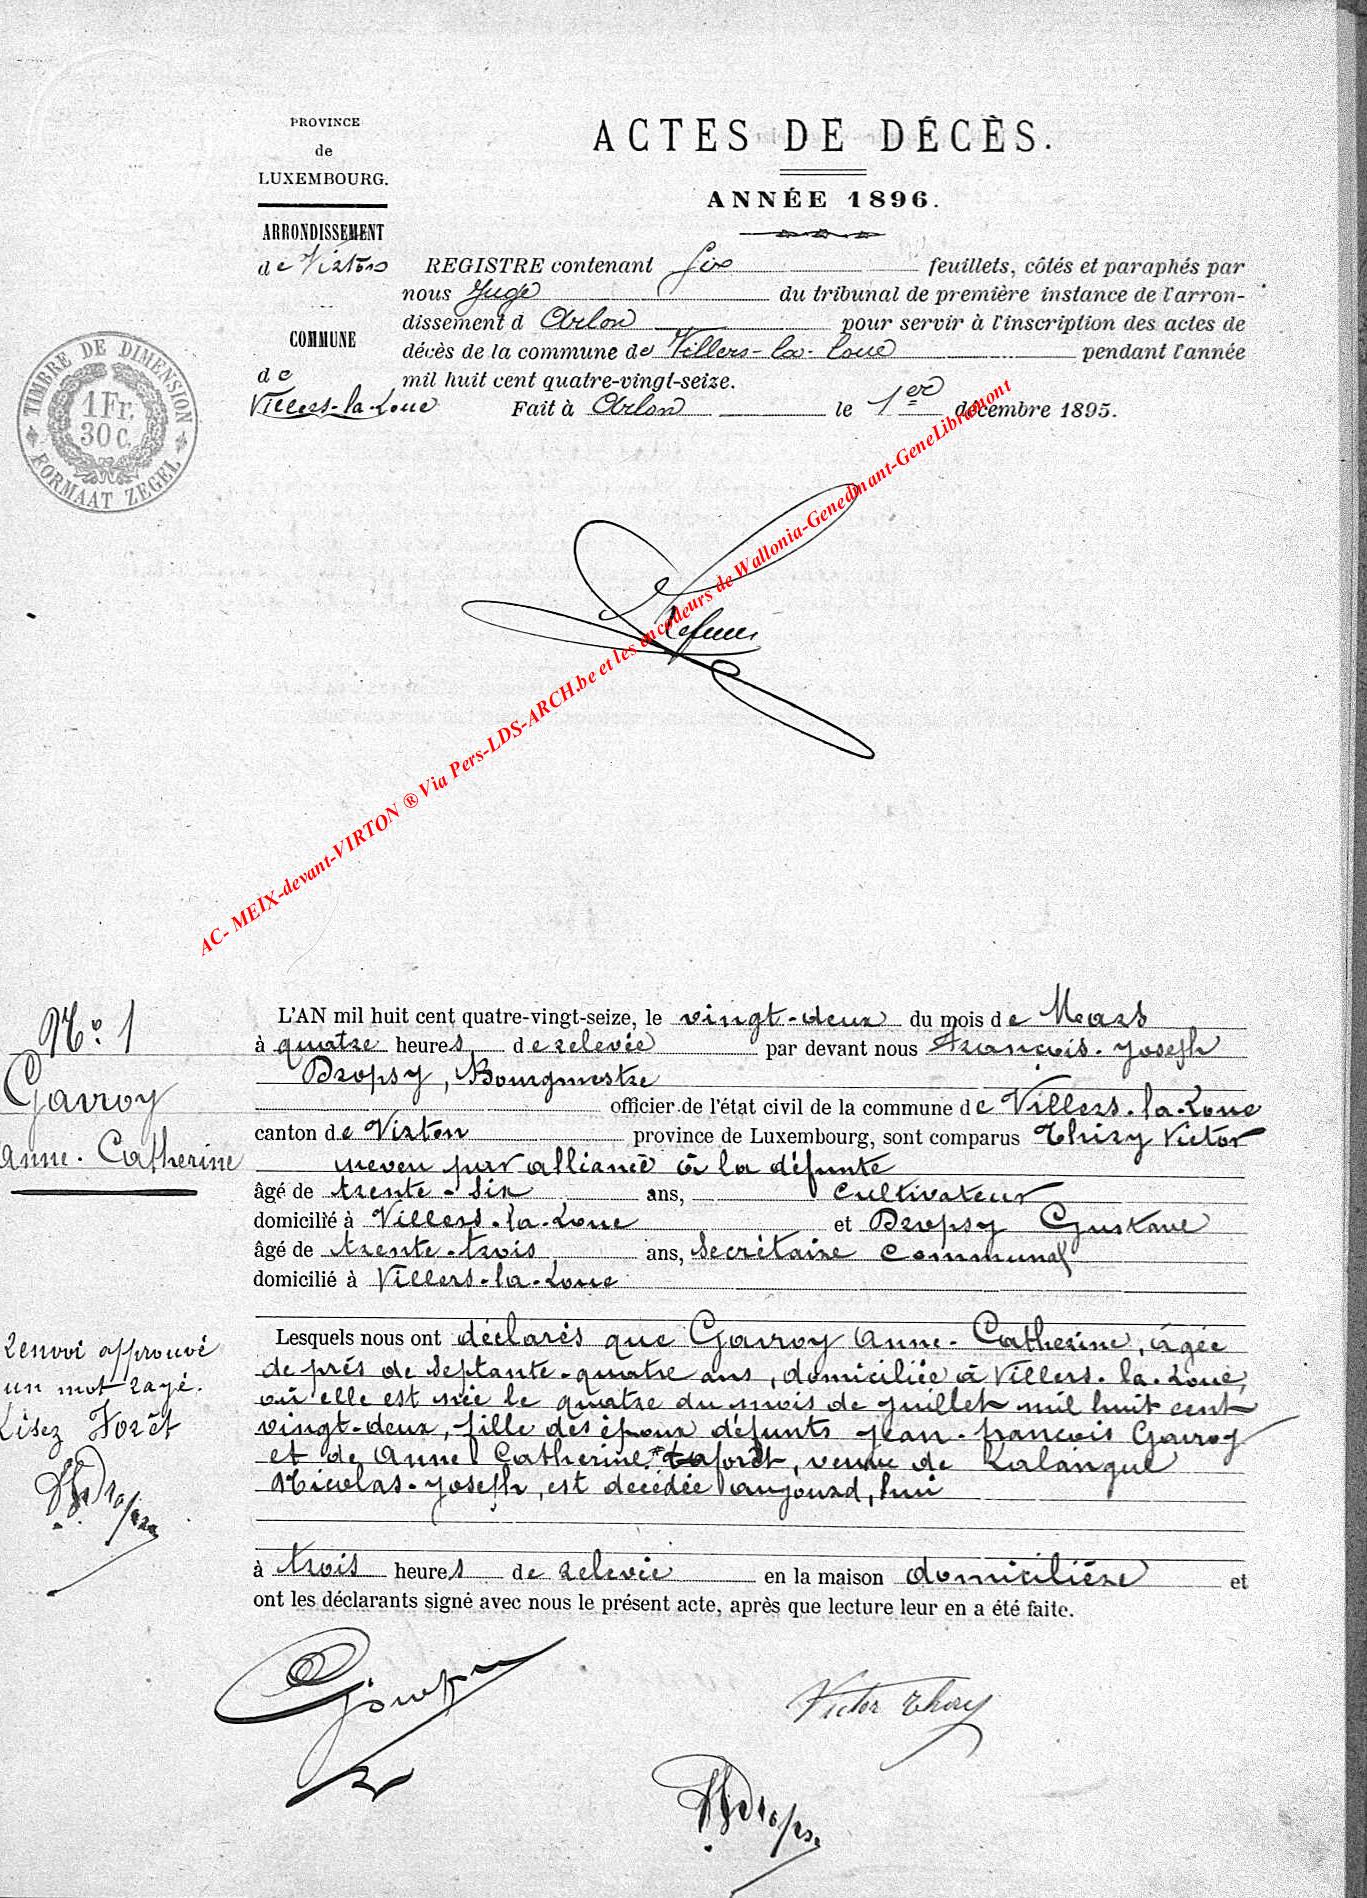 PROVINCE
de
LUXEMBOURG.
ARRONDISSEMENT
de Virton
COMMUNE
de
Villers-la-Loue
TIMBRE DE DIMENSION
1 Fr.
30 C.
FORMAAT ZEGEL
ACTES DE DÉCÈS.
ANNÉE 1896.
REGISTRE contenant six feuillets, côtés et paraphés par
nous Juge du tribunal de première instance de l'arron-
dissement d Arlon pour servir à l'inscription des actes de
décès de la commune de Villers-la-Loue pendant l'année
mil huit cent quatre-vingt-seize.
Fait à Arlon le 1er décembre 1895.
AC- MEIX-devant-VIRTON ® Via Pers-LDS-ARCH.be et les encodeurs de Wallonia-Genedinant-GeneLibramont
N° 1
Gavroy
Anne-Catherine
L'AN mil huit cent quatre-vingt-seize, le vingt-deux du mois de Mars
à quatre heures de relevée par devant nous François-Joseph
Dropsy, Bourgmestre
officier de l'état civil de la commune de Villers-la-Loue
canton de Virton province de Luxembourg, sont comparus Thiry Victor
neveu par alliance à la défunte
âgé de trente-six ans, cultivateur
domicilié à Villers-la-Loue et Dropsy Gustave
âgé de trente-trois ans, secrétaire communal
domicilié à Villers-la-Loue
Lesquels nous ont déclarés que Gavroy Anne-Catherine, âgée
de près de septante-quatre ans, domiciliée à Villers-la-Loue,
où elle est née le quatre du mois de juillet mil huit cent
vingt-deux, fille des époux défunts Jean-françois Gavroy
et de Anne Catherine * Laforêt, veuve de Lalangue
Nicolas-Joseph, est décédée aujourd'hui
à trois heures de relevée en la maison domicilière et
ont les déclarants signé avec nous le présent acte, après que lecture leur en a été faite.
Renvoi approuvé
un mot rayé.
Lisez Forêt
FJ Dropsy
G Dropsy
Victor Thiry
FJ Dropsy